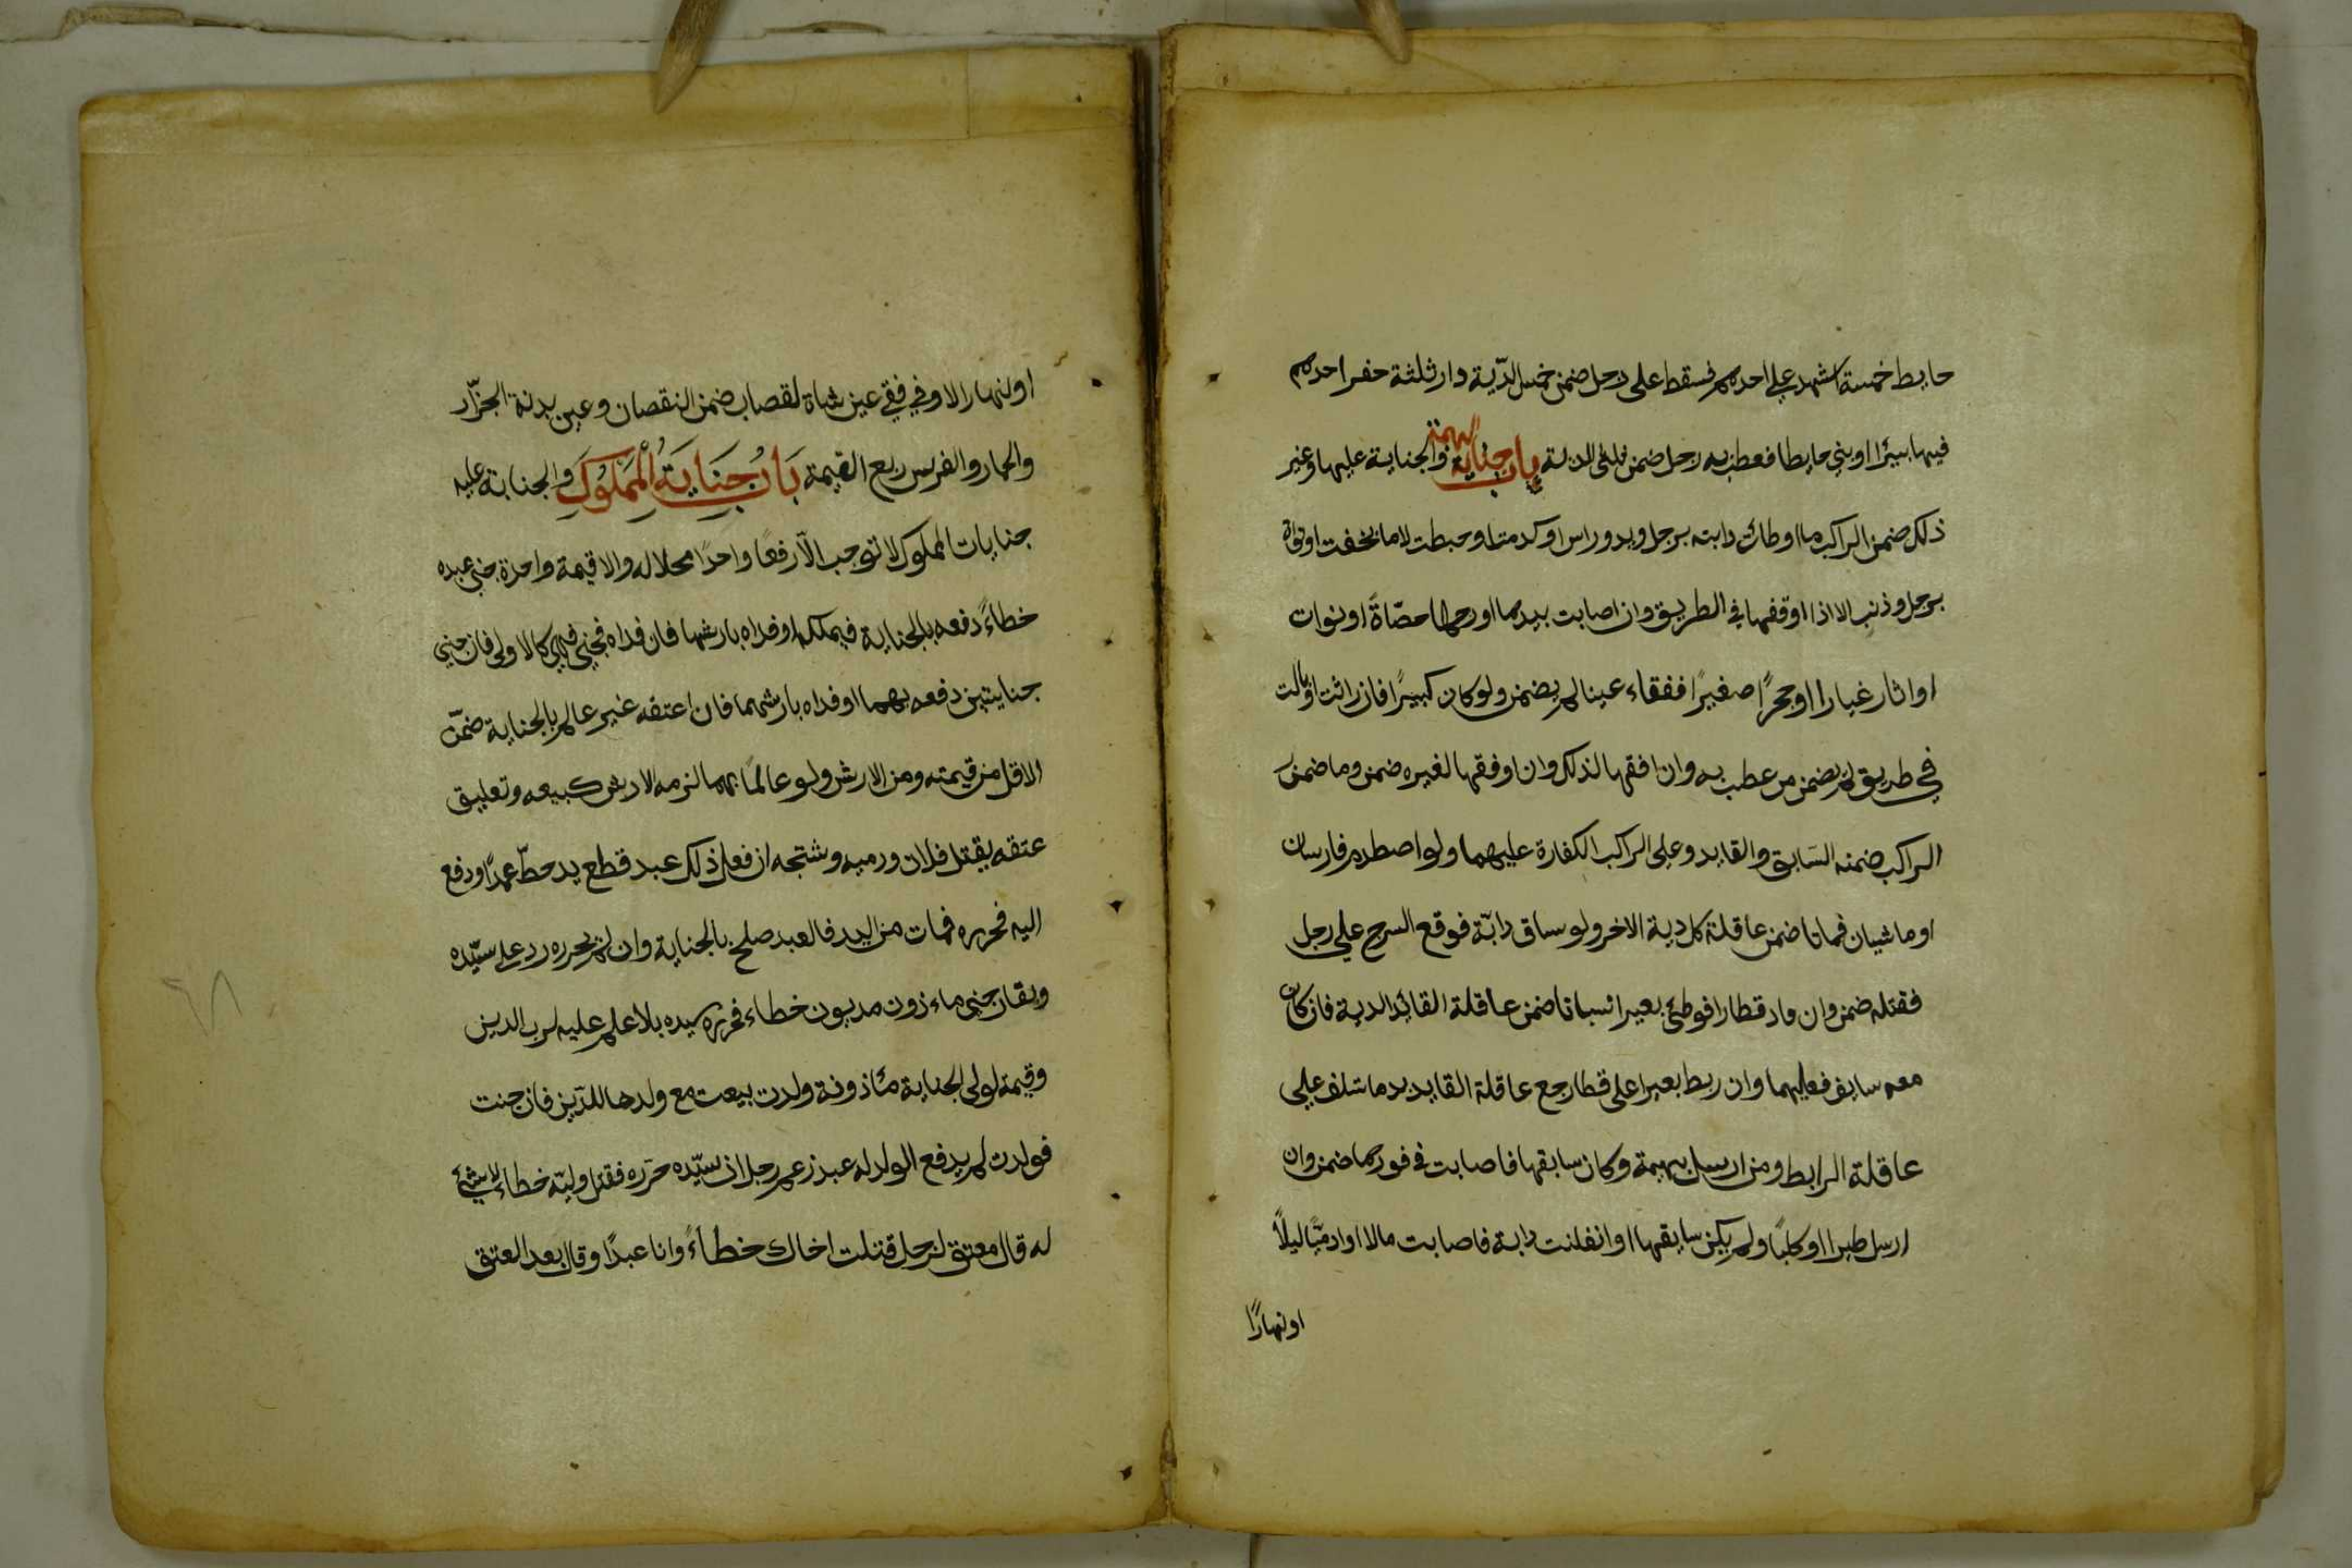 حايط خمسة اشهد على احدهم فسقط على رجل ضمن خمس الدّية دار ثلثة حفر احدهم
فيها بيئرا او بني حايطا فعطب به رجل ضمن ثلثى الدية باب جناية البهيمة والجناية عليها وغير
ذلك ضمن الراكب ما اوطات دابته برجل ويد وراس او كدمت او خبطت لا ما نخفت او نواة
برجل وذنب الا اذا اوقفها في الطريق وان اصابت بيدها او رجلها حصّاةً او نوات
او اثار غبارا او حجرًا صغيرًا ففقاء عينا لم يضمن ولو كان كبيرًا فان راثت او بالت
في طريق لم يضمن من عطب به وان افقها لذلك وان اوفقها لغيره ضمن وما ضمن
الراكب ضمنه السَابق والقايد وعلى الراكب الكفارة عليهما ولو اصطدم فارسان
او ماشيان فماتا ضمن عاقلة كل دية الاخر ولو ساق دابّة فوقع السرج على رجل
فقتله ضمن وان قاد قطارا فوطئ بعيرا نسبانا ضمن عاقلة القائد الدية فان كان
معه سايق فعليهما وان ربط بعيرا على قطار رجع عاقلة القايد بدما تلف على
عاقلة الرابط ومن ارسل بهيمة وكان سابقها فاصابت في فورها ضمن وان
ارسل طيرا او كلبًا ولم يكن سايقها او انفلتت دابة فاصابت مالا او ادميًّا ليلًا
او نهارًا
او لنهارا لا وفي فقي عين شاة لقصاب ضمن النقصان وعين بدنة الجزّار
والحمار والفرس ربع القيمة بَابُ جِنَايَةُ الْمَمْلُوْكِ والجناية عليه
جنايات المملوك لا توجب الّا رفعًا واحدًا محلا له والا قيمة واحدة جنى عبده
خطاءً دفعه بالجناية فيملكه او فداه بارشها فان فداه فجنى فهي كالاولى فان جنى
جنايتين دفعه بهما او فداه بارشهما فان اعتقه غير عالم بالجناية ضمّن
الاقل من قيمته ومن الارش ولو عالمًا بهما لزمه الارش كبيعه وتعليق
عتقه بقتل فلان ورميه وشتجه ان فعل ذلك عبد قطع يد حطّ عمدًا ودفع
اليه فحرره فمات من اليد فالعبد صلح بالجناية وان لم يحرره رد على سيّده
ويقاد جنى ماءذون مديون خطاء فحرره سيده بلا علم عليه لرب الدين
وقيمة لولى الجناية مئاذونة ولدت بيعت مع ولدها للدّين فان جنت
فولدت لم يدفع الولد له عبد زعم رجل ان سيّده حرّره فقتل وليّه خطاء لا شئ
له قال معتق لرجل قتلت اخاك خطاءً وانا عبدًا وقال بعد العتق